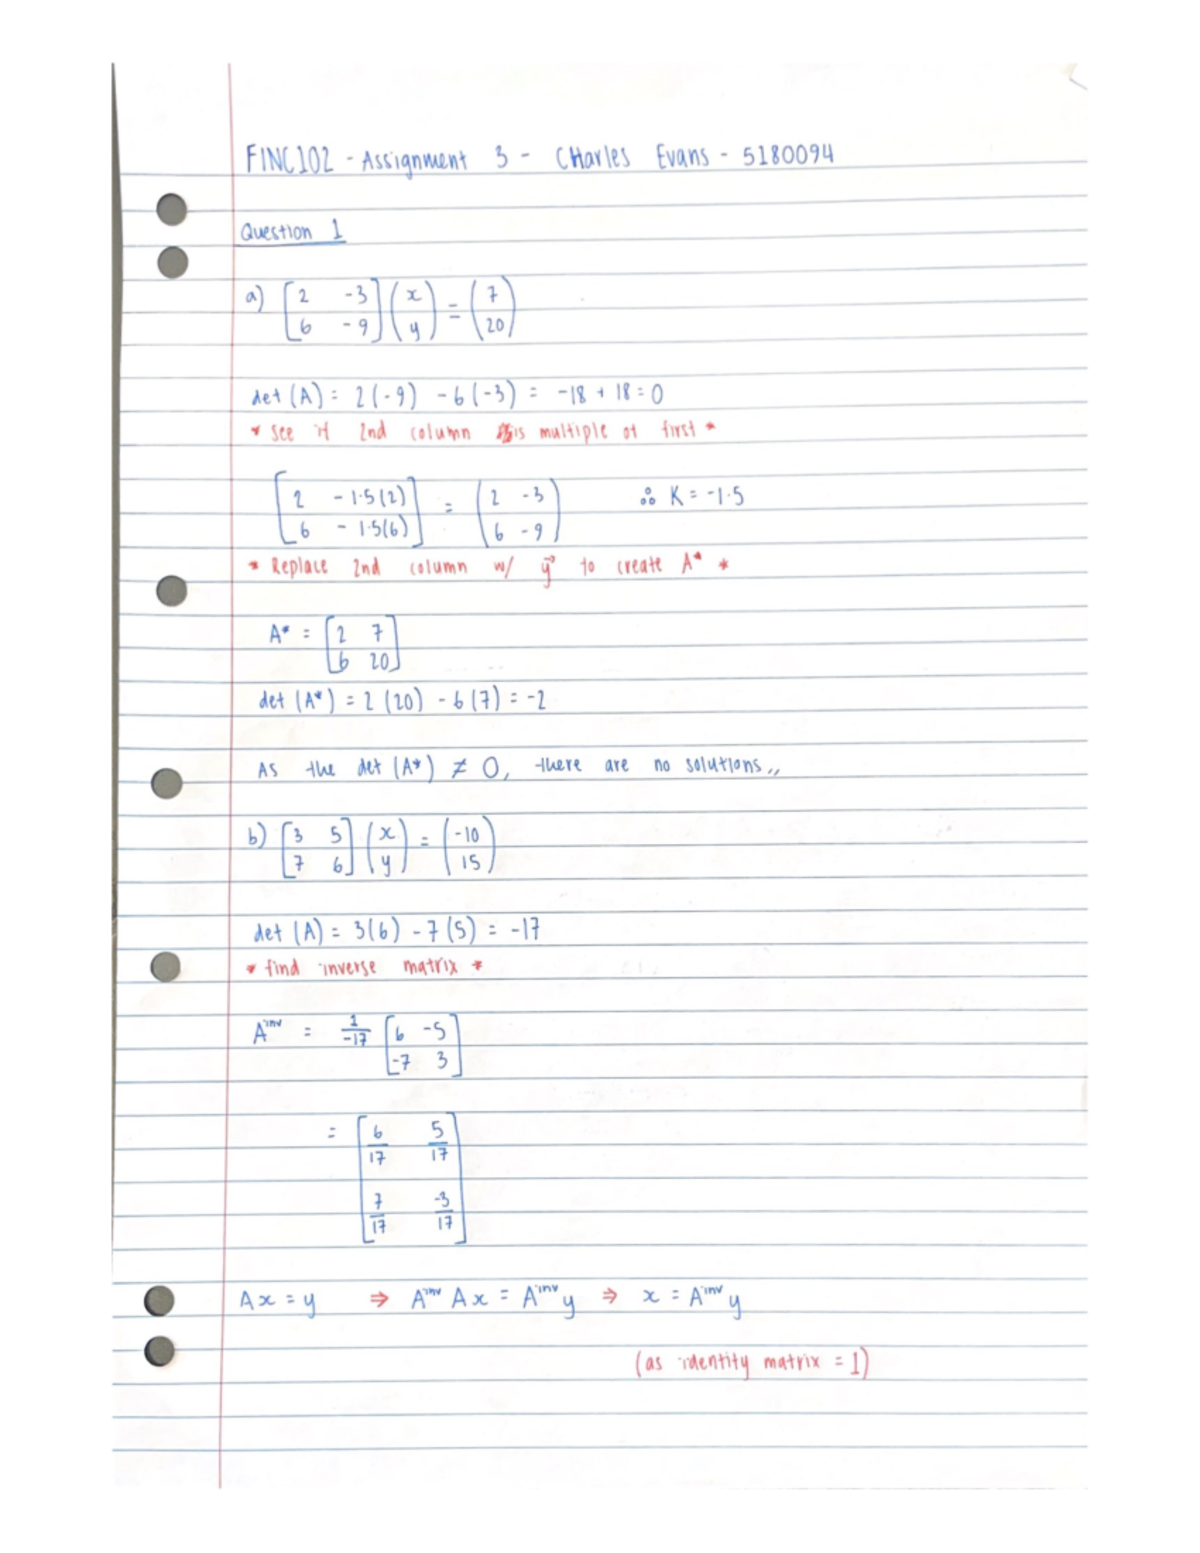 FINC102 - Assignment 3 - CHarles Evans - 5180094
Question 1
a) [2 -3; 6 -9] (x; y) = (7; 20)
det (A) = 2(-9) - 6(-3) = -18 + 18 = 0
* See if 2nd column is multiple of first *
[2 -1.5(2); 6 -1.5(6)] = (2 -3; 6 -9) ∴ K = -1.5
* Replace 2nd column w/ y⃗ to create A* *
A* = [2 7; 6 20]
det (A*) = 2 (20) - 6 (7) = -2
As the det (A*) ≠ 0, there are no solutions,,
b) [3 5; 7 6] (x; y) = (-10; 15)
det (A) = 3(6) - 7(5) = -17
* find inverse matrix *
A^inv = 1/-17 [6 -5; -7 3]
= [6/17 5/17; 7/17 -3/17]
Ax = y ⇒ A^inv Ax = A^inv y ⇒ x = A^inv y
(as identity matrix = 1)